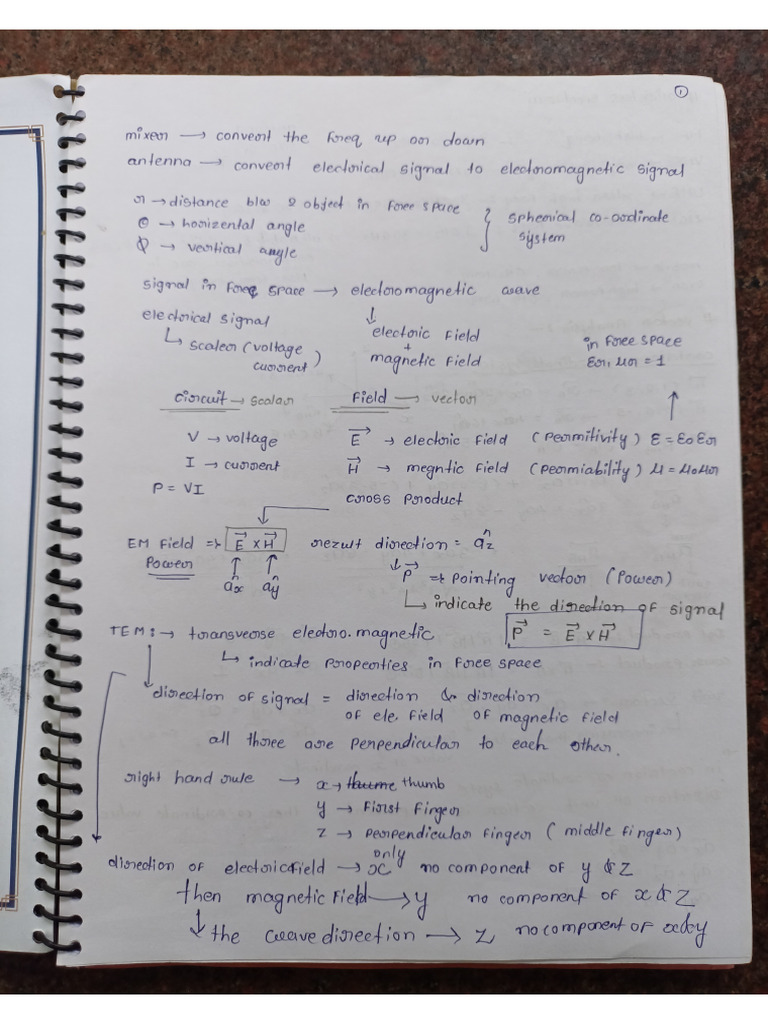 1
mixer → convert the freq up or down
antenna → convert electrical signal to electromagnetic signal
r → distance b/w 2 object in free space
θ → horizental angle
φ → vertical angle
} spherical co-ordinate system
signal in freq space → electromagnetic wave
electrical signal
↳ scaler (voltage current)
↓ electric field + magnetic field
in free space
εr, μr = 1
circuit → scalar
Field → vector
V → voltage
E⃗ → electric field (Permitivity) ε = ε0 εr
I → current
H⃗ → megntic field (Permiability) μ = μ0 μr
P = VI
cross product
EM Field ⇒ E⃗ × H⃗ rezult direction = âz
Power
âx ây
↳ P⃗ ⇒ Pointing vector (Power)
↳ indicate the direction of signal
P⃗ = E⃗ × H⃗
TEM : → transverse electro.magnetic
↳ indicate properties in free space
direction of signal = direction & direction
of ele. field of magnetic field
all three are perpendicular to each other.
right hand rule → x → thumb
y → First finger
z → perpendicular finger (middle finger)
direction of electric field → x only no component of y & z
then magnetic field → y no component of x & z
↳ the wave direction → z no component of x & y